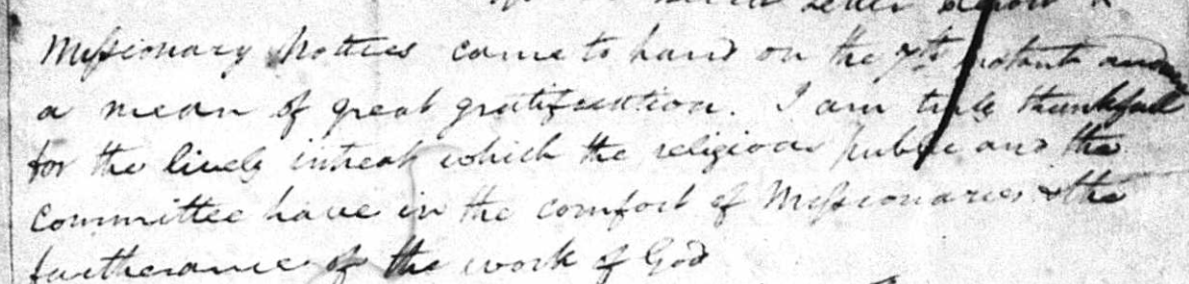 Letter Report &
Missionary Notices came to hand on the 7th instant and
a mean of great gratification. I am truly thankful
for the lively intrest which the religious public and the
committee have in the comfort of Missionaries & the
furtherance of the work of God